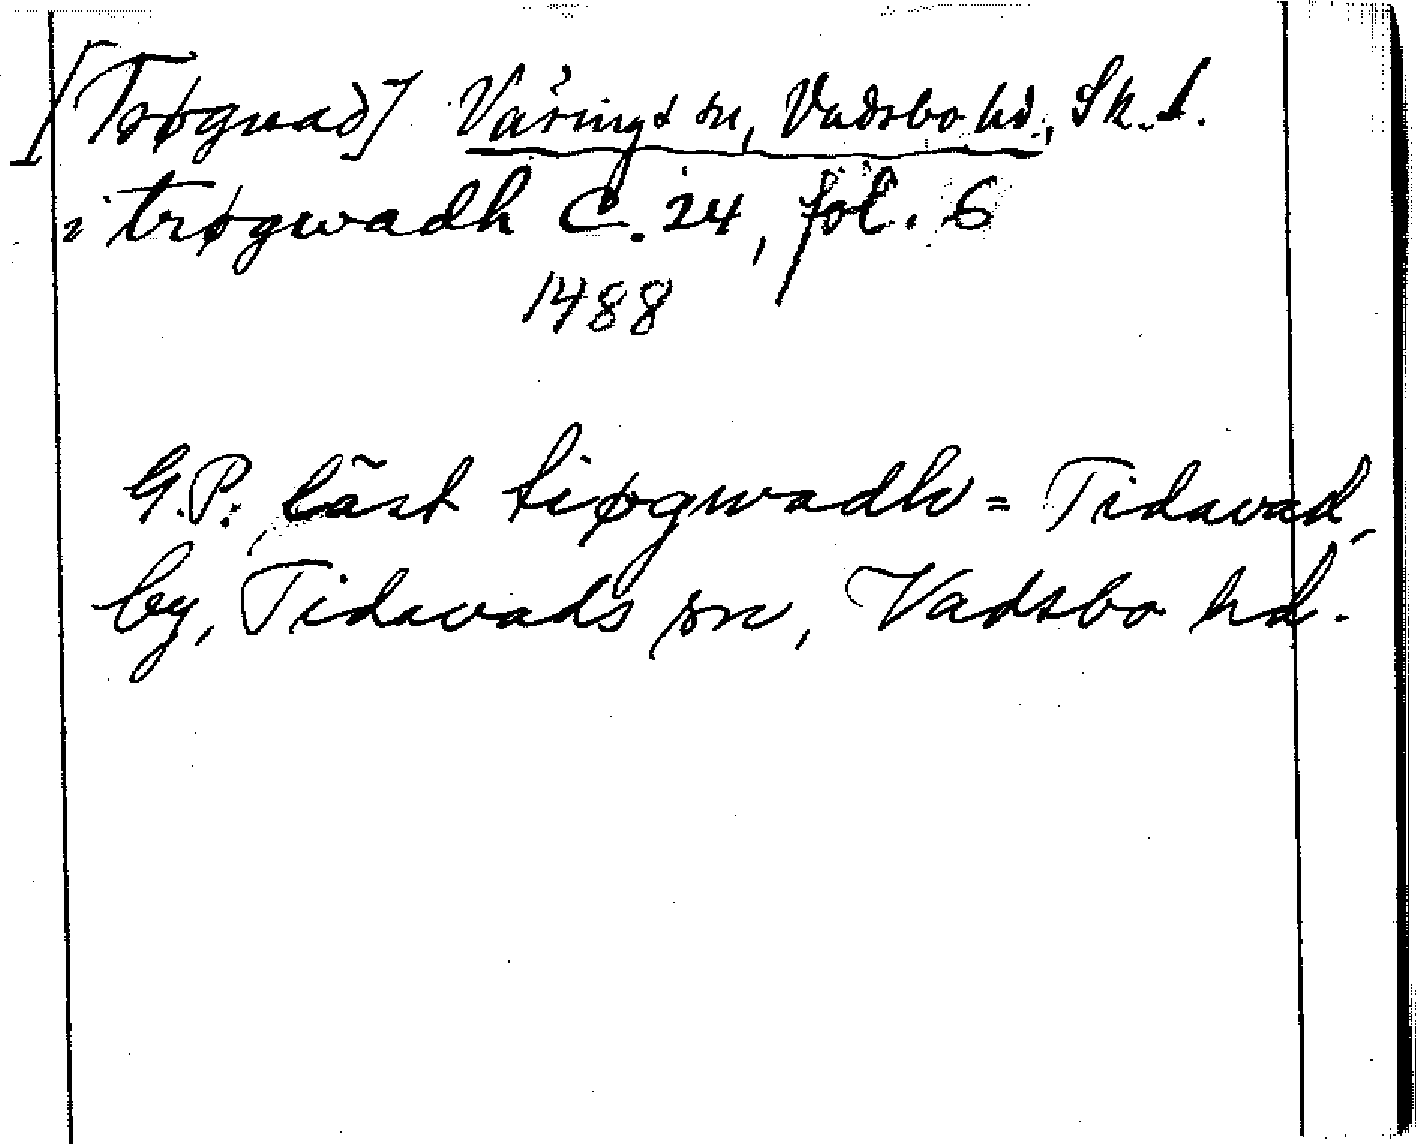 [Trøgvad] Värings sn, Vadsbo hd, Sk. l.
i trøgwadh C. 24, fol. 6
1488
G.P. läst tiøgwadh = Tidavad,
by, Tidavads sn, Vadsbo hd.